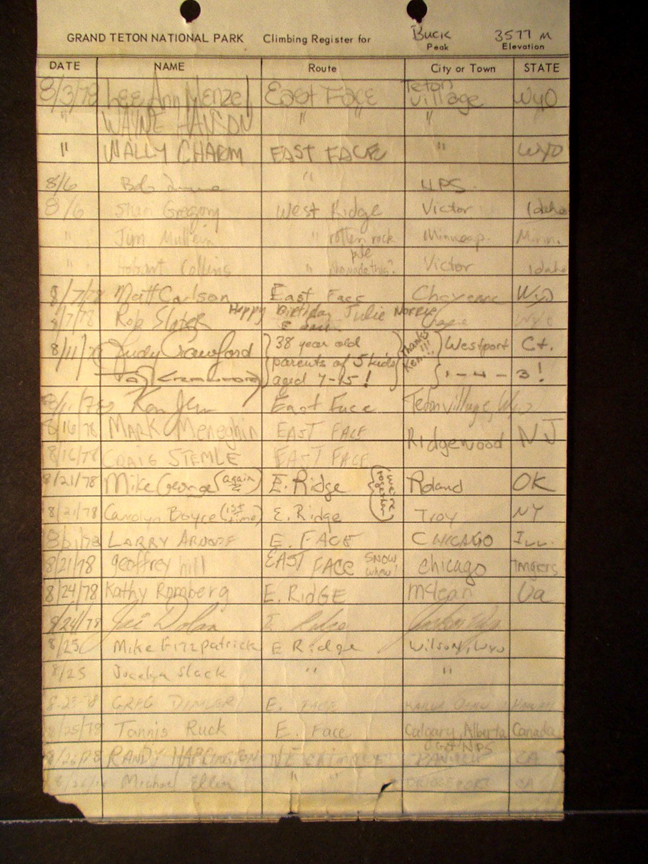 GRAND TETON NATIONAL PARK Climbing Register for Buck 3577 m
Peak Elevation
DATE NAME Route City or Town STATE
8/3/78 Lee Ann Menzel East Face Teton Village Wyo
" WAYNE HANSON " " "
" WALLY CHARM EAST FACE " WYO
8/6 Bob "
8/6 Stan Gregory West Ridge Victor Idaho
" Jim " rotten rock Minneap. Minn.
pile
" Collins " Victor Idaho
8/7/78 Matt Carlson East Face Cheyenne Wyo
8/7/78 Rob Slater Happy Birthday Julie
8/11/78 Judy Crawford 38 year old Thanks Ken!!! Westport Ct.
parents of 5 kids
aged 7-15! 1-4-3!
8/11/78 Ken East Face Teton Village, Wyo
8/16/78 MARK Meneghin EAST FACE Ridgewood NJ
8/16/78 CRAIG STEMLE EAST FACE
8/21/78 Mike George (again) E. Ridge (we're together) Roland OK
8/21/78 Carolyn Boyce (1st time) E. Ridge Troy NY
LARRY E. FACE CHICAGO Ill.
8/21/78 geoffrey hill EAST FACE SNOW chicago
8/24/78 Kathy Romberg E. RidGE mclean Va
8/24/78 Dolan
8/25 Mike Fitzpatrick E Ridge Wilson, Wyo
8/25 Jocelyn Slack " "
GREG E. FACE
8/25/78 Tannis Ruck E. Face Calgary, Alberta Canada
8/26/78 RANDY HARRINGTON NE chimney CA
Michael " " CA